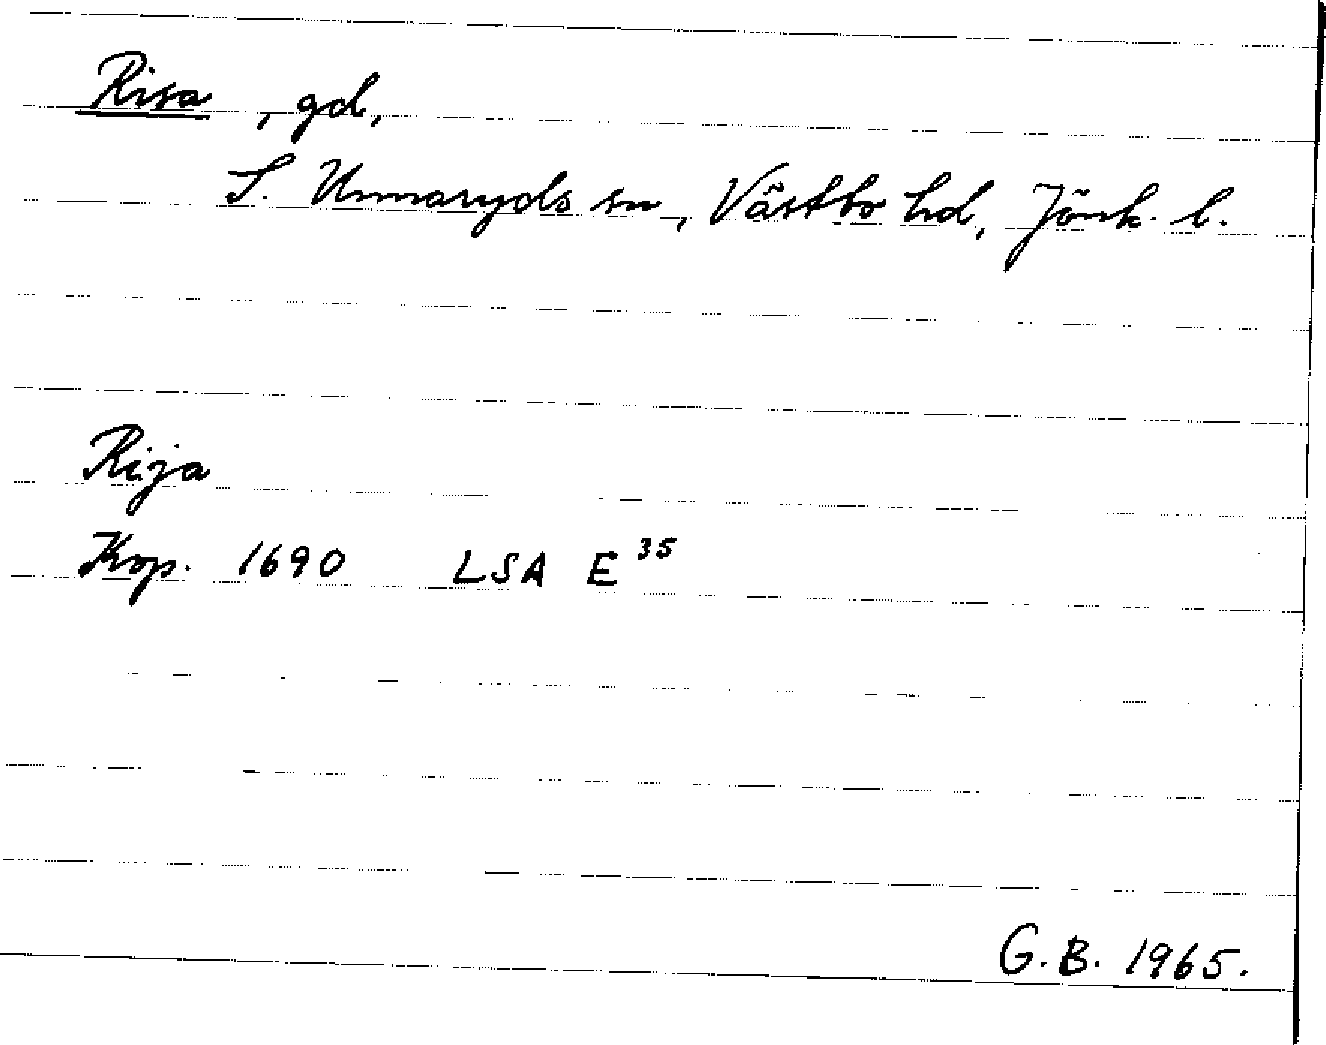 Risa, gd,
S. Unnaryds sn, Västbo hd, Jönk. l.
Rija
Kop. 1690 LSA E 35
G.B. 1965.